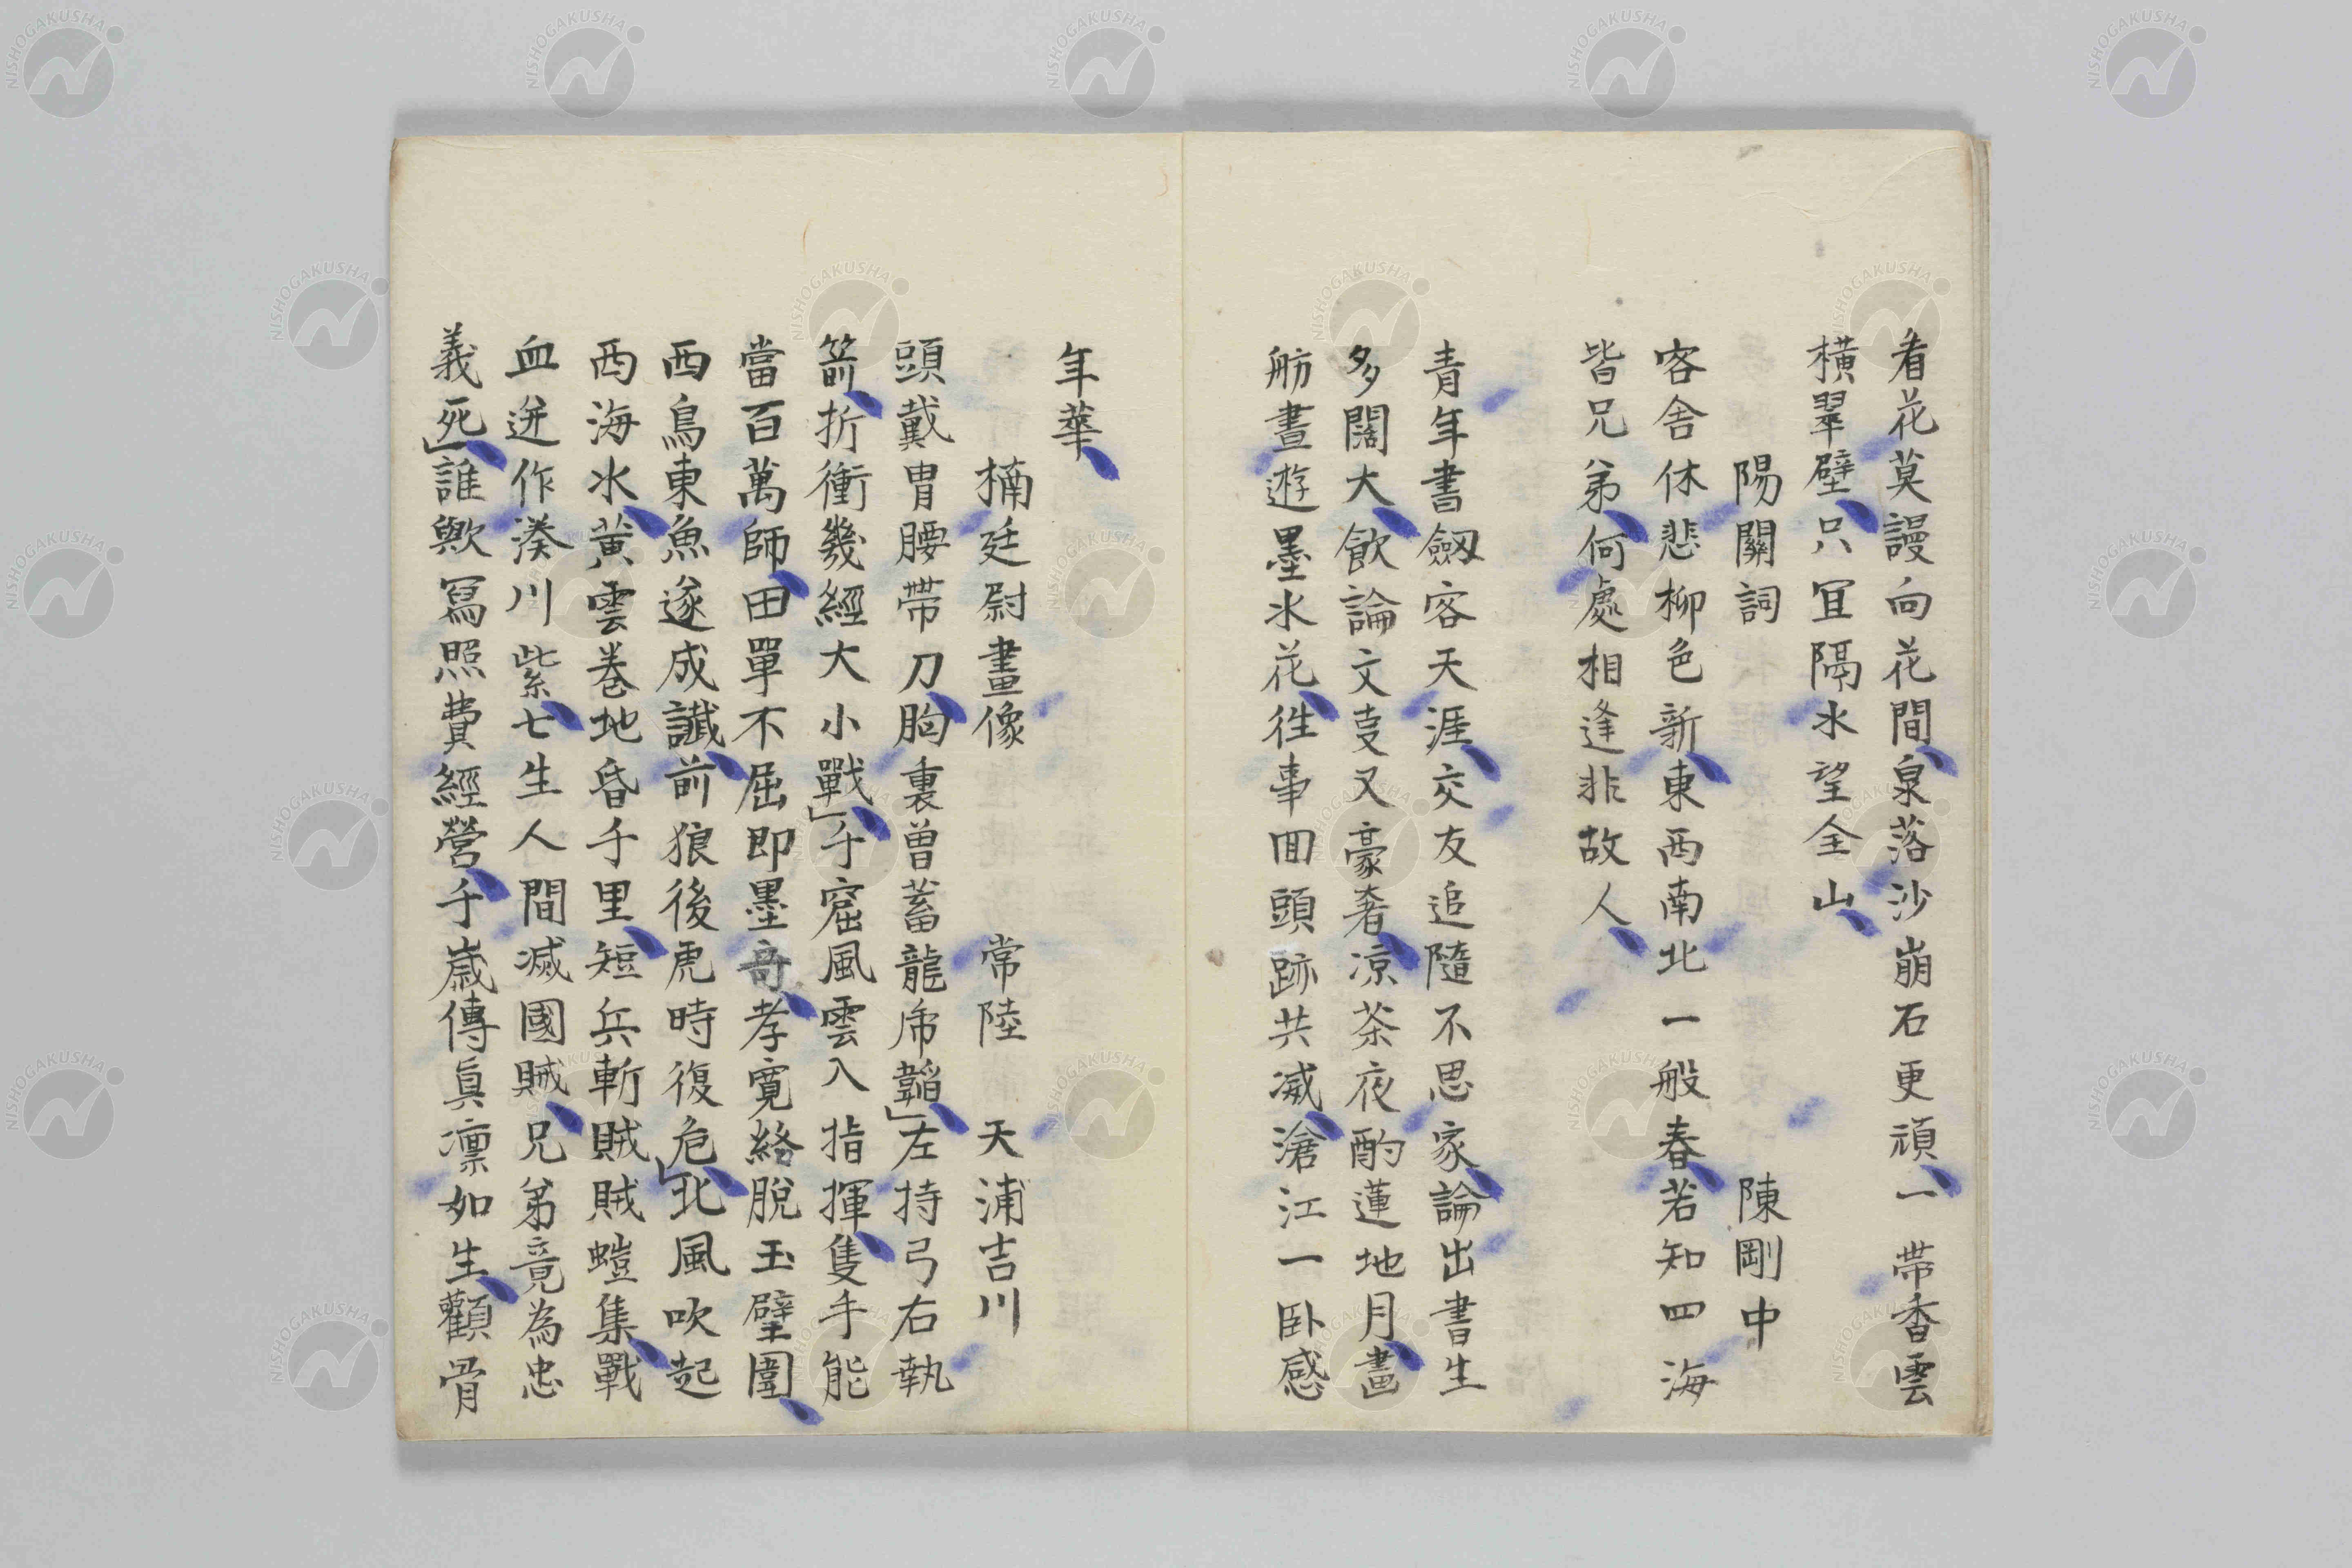 看花莫謾向花間泉落沙崩石更頑一帶香雲
橫翠壁只宜隔水望全山
陽關詞 陳剛中
客舍休悲柳色新東西南北一般春若知四海
皆兄弟何處相逢非故人
青年書劔客天涯交友追隨不思家論出書生
多闊大飲論文支又豪奢凉茶夜酌蓮地月畵
舫晝遊墨水花徃事囬頭跡共滅滄江一卧感
年華
楠廷尉畫像 常陸 天浦吉川
頭戴冑腰帶刀胸裏曽蓄龍乕韜左持弓右執
箭折衝幾經大小戰千窟風雲入指揮隻手能
當百萬師田單不屈即墨奇孝寛終脫玉壁圍
西鳥東魚遂成讖前狼後虎時復危北風吹起
西海水黄雲卷地昏千里短兵斬賊賊螘集戰
血迸作湊川紫七生人間滅國賊兄弟竟為忠
義死誰歟冩照費經營千歲傳眞凛如生顴骨
NISHOGAKUSHA